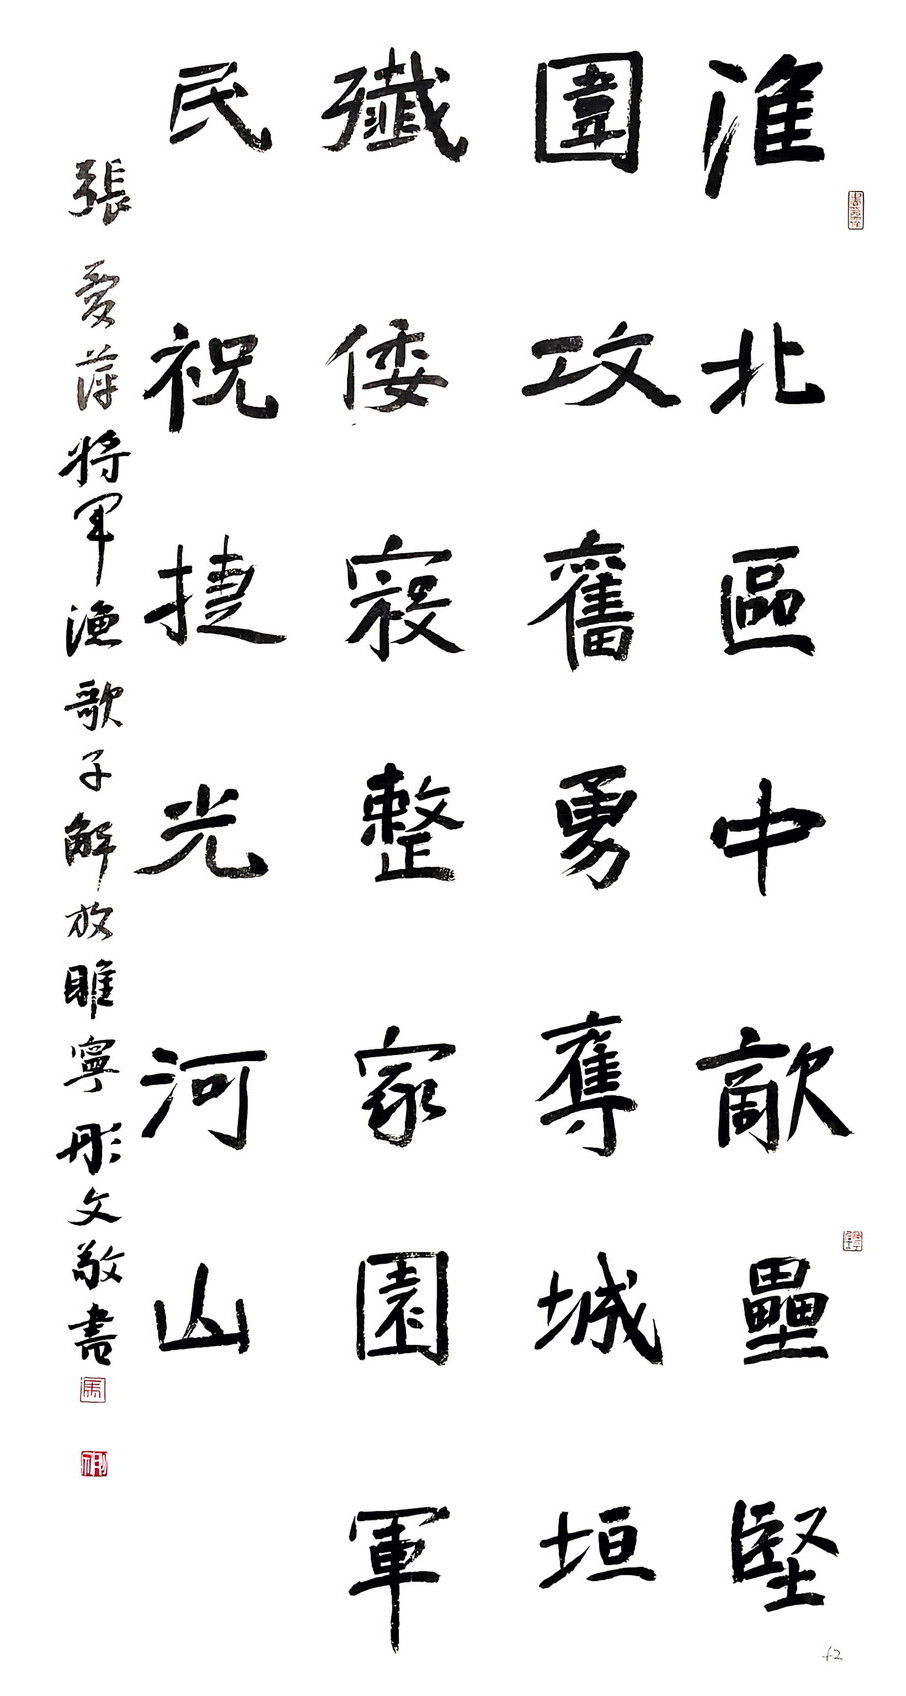 淮北區中敵壘堅
圍攻奮勇奪城垣
殲倭寇整家園軍
民祝捷光河山
張愛萍将军漁歌子解放睢寧彤文敬書
馬
42